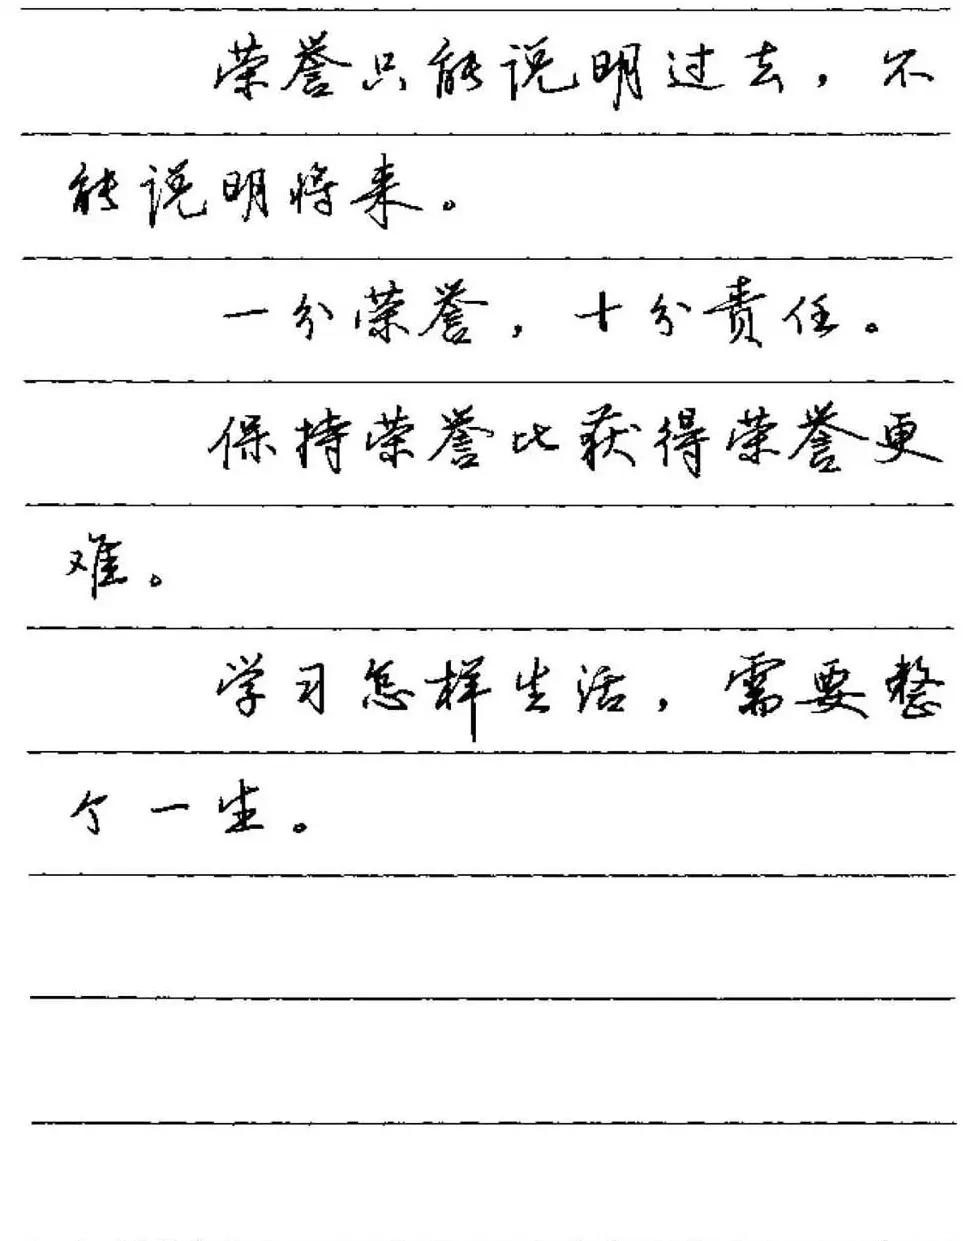 荣誉只能说明过去，不
能说明将来。
一分荣誉，十分责任。
保持荣誉比获得荣誉更
难。
学习怎样生活，需要整
个一生。